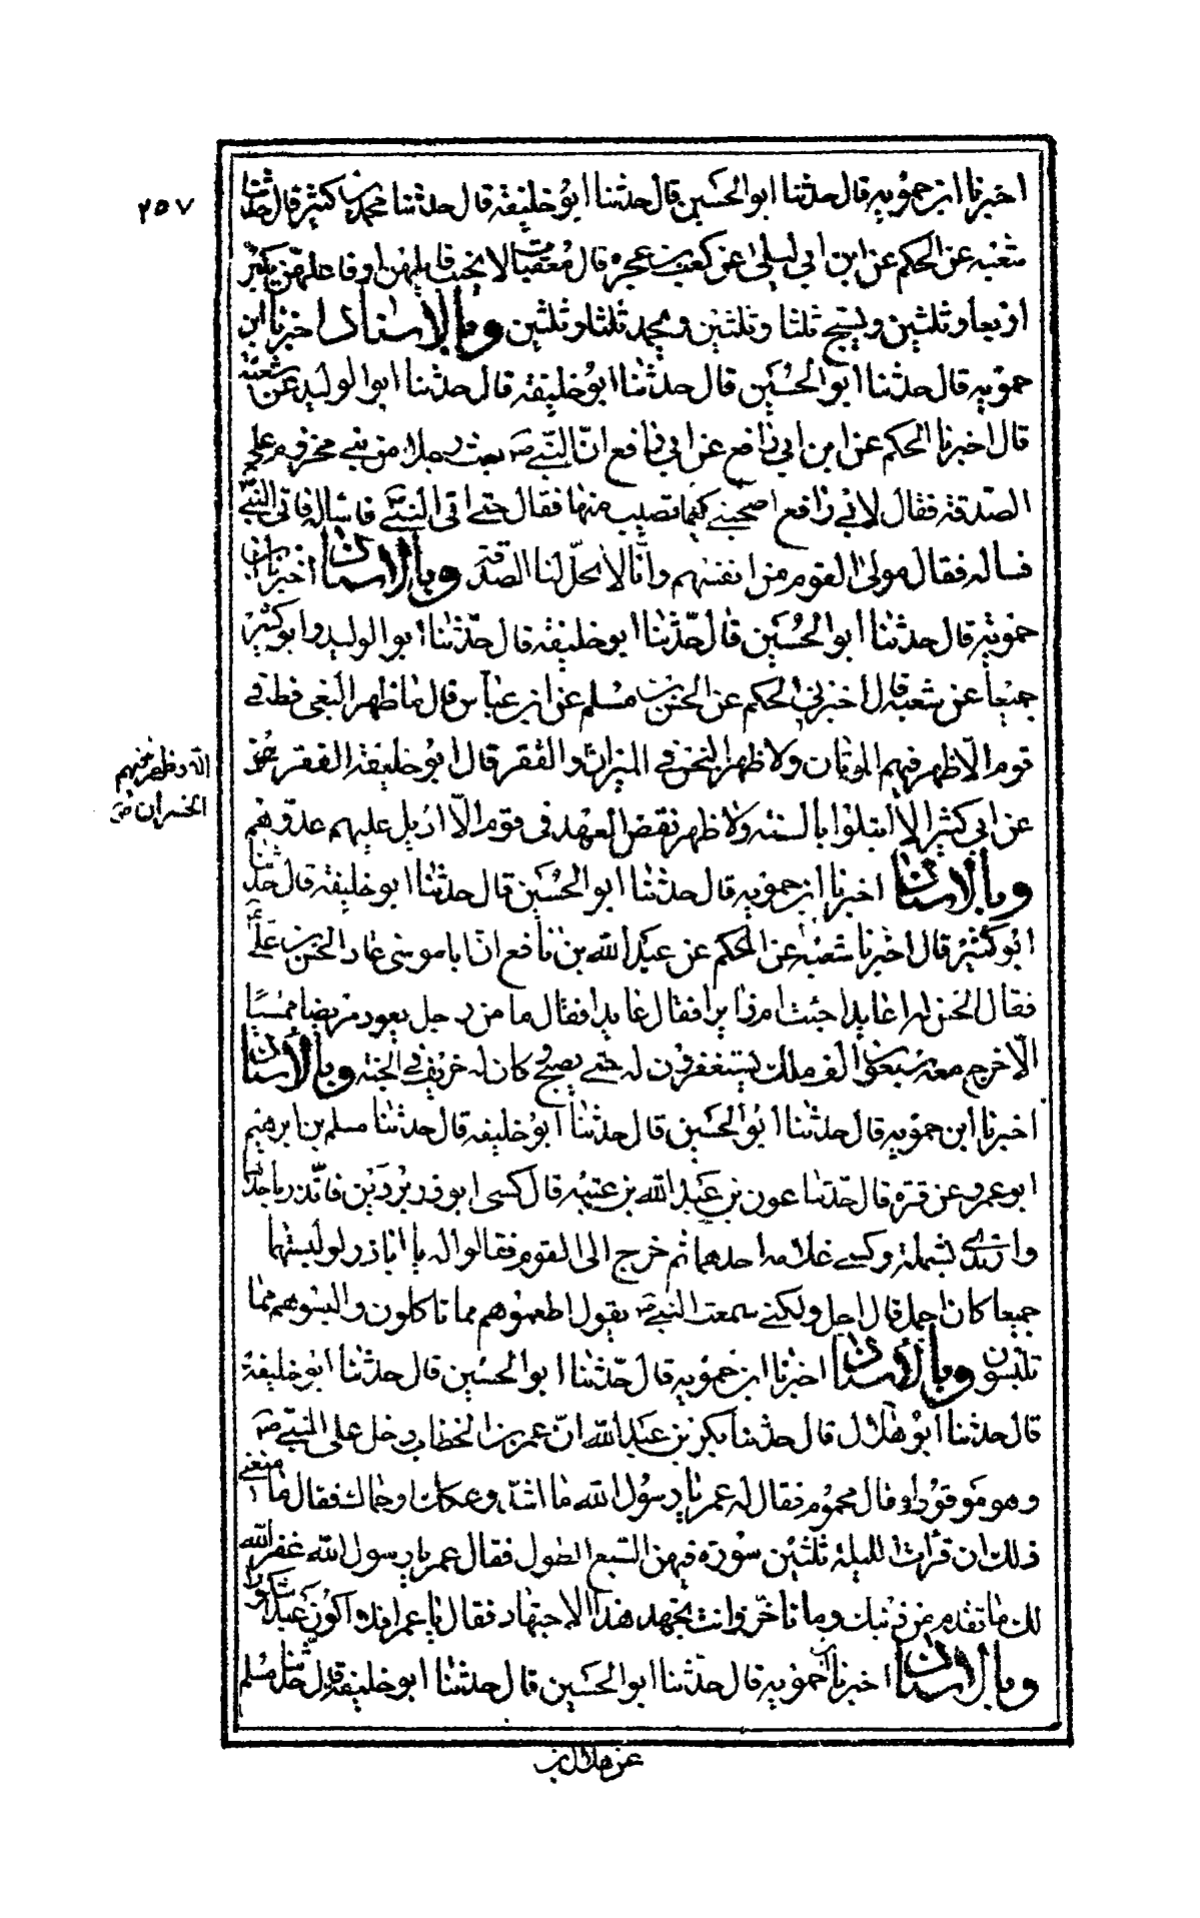 ٢٥٧
اخبرنا ابن حمويه قال حدثنا ابو الحسين قال حدثنا ابو خليفة قال حدثنا محمد بن كثير قال حدثنا
شعبه عن الحكم عن ابن ابي ليلى عن كعب بن عجره قال معقبات لا يخيب قايلهن او فاعلهن يكبر
اربعا وثلثين ويسبح ثلثا وثلثين ويحمد ثلثا وثلثين وبالاسناد اخبرنا ابن
حمويه قال حدثنا ابو الحسين قال حدثنا ابو خليفه قال حدثنا ابو الوليد عن شعبة
قال اخبرنا الحكم عن ابن ابي رافع عن ابي رافع انّ النبي ص بعث رجلا من بني مخزوم على
الصدقة فقال لابي رافع اصحبني كيما نصيب منها فقال حتى اتى النبي فاساله فاتى النبي
فساله فقال مولى القوم من انفسهم وانّا لا تحلّ لنا الصدقة وبالاسناد اخبرنا ابن
حمويه قال حدثنا ابو الحسين قال حدّثنا ابو خليفة قال حدّثنا ابو الوليد وابو كثير
جميعا عن شعبة قال اخبرني الحكم عن الحسن بن مسلم عن ابن عباس قال ما ظهر البغي قط في
قوم الّا ظهر فيهم الموتان ولا ظهر البخس في الميزان والقفر قال ابو خليفة القفر
عن ابي كثير الا ابتلوا بالسنه ولا ظهر نقض العهد في قوم الّا اديل عليهم عدوهم
الّا وظهر فيهم
الخسران ص
وبالاسناد اخبرنا ابن حمويه قال حدثنا ابو الحسين قال حدثنا ابو خليفة قال حدّثنا
ابو كثير قال اخبرنا شعبه عن الحكم عن عبد الله بن نافع انّ ابا موسى عاد الحسن بن علي
فقال الحسن له اعايدا جئت ام زايرا فقال عايدا فقال ما من رجل يعود مريضا ممسيا
الّا خرج معه سبعون الف ملك يستغفرون له حتى يصبح وكان له خريف في الجنة وبالاسناد
اخبرنا ابن حمويه قال حدثنا ابو الحسين قال حدثنا ابو خليفه قال حدثنا مسلم بن ابرهيم
ابو عمرو عن قرة قال حدّثنا عون بن عبد الله بن عتبه قال كسى ابو ذر بردين فاتّزر باحدهما
وارتدى بشملة وكسى غلامه احدهما ثم خرج الى القوم فقالوا له يا اباذر لو لبستهما
جميعا كان اجمل قال اجل ولكني سمعت النبي ص يقول اطعموهم مما تاكلون والبسوهم ممّا
تلبسون وبالاسناد اخبرنا ابن حمويه قال حدّثنا ابو الحسين قال حدثنا ابو خليفة
قال حدثنا ابو هلال قال حدثنا بكر بن عبد الله انّ عمر بن الخطاب دخل على النبي ص
وهو موقوذ او قال محموم فقال له عمر يا رسول الله ما اشدّ وعكك او حماك فقال ما منعني
ذلك ان قرات الليلة ثلثين سورة فيهن السبع الطول فقال عمر يا رسول الله غفر الله
لك ما تقدم من ذنبك وما تاخّر وانت تجتهد هذا الاجتهاد فقال يا عمر افلا اكون عبدا شكورا
وبالاسناد اخبرنا ابن حمويه قال حدّثنا ابو الحسين قال حدثنا ابو خليفة قال حدّثنا مسلم
عن هلال بن